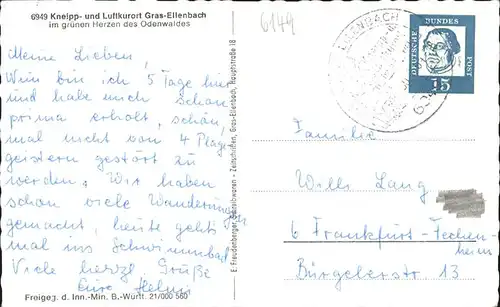 6949 Kneipp- und Luftkurort Gras-Ellenbach
im grünen Herzen des Odenwaldes
6149
Meine Lieben,
Nun bin ich 5 Tage hier
und habe mich schon
prima erholt, schön,
mal nicht von 4 Plage-
geistern gestört zu
werden. Wir haben
schon viele Wanderungen
gemacht, heute geht's
mal ins Schwimmbad.
Viele herzl. Grüße
Eure
Freigeg. d. Inn.-Min. B.-Württ. 21/000 560
E. Freudenberger, Schreibwaren - Zeitschriften, Gras-Ellenbach, Hauptstraße 18
ELLENBACH
DEUTSCHE BUNDESPOST
15
Familie
Willi Lang
6 Frankfurt-Fechen-
heim
Bürgelerstr 13